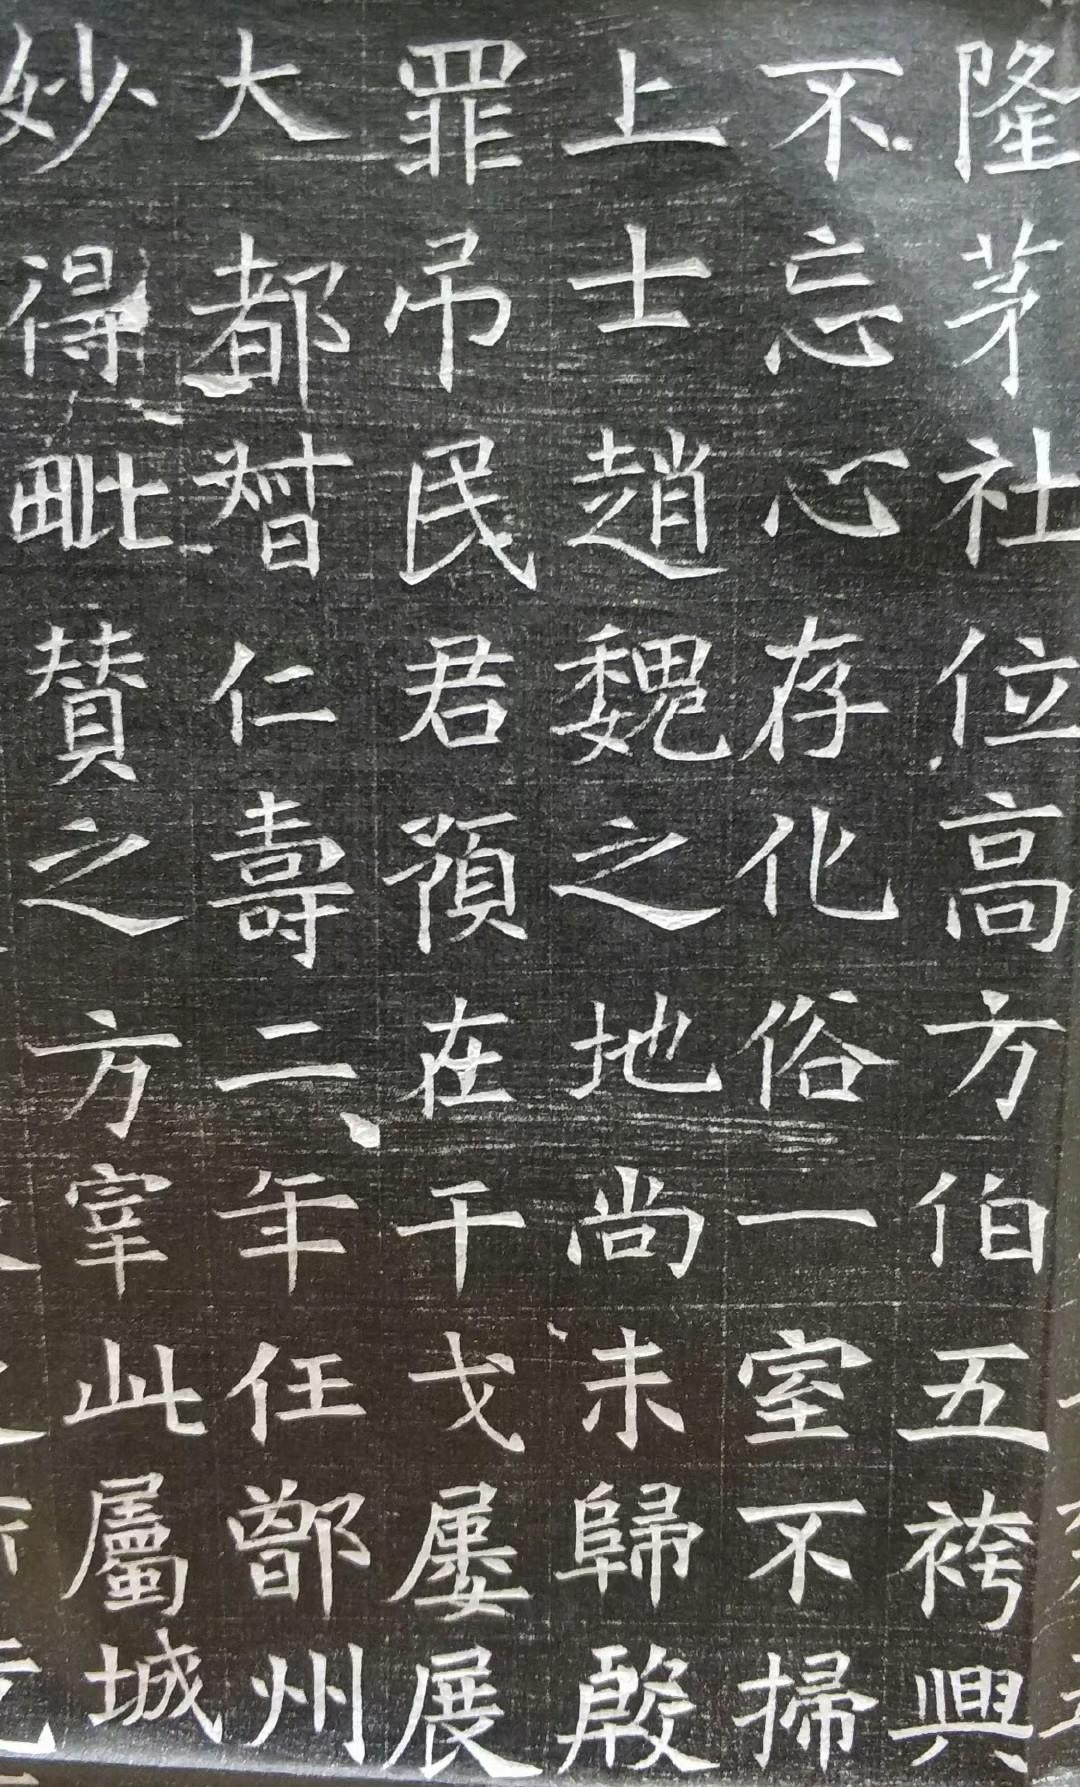 隆茅社位高方伯五袴興
不忘心存化俗一室不掃
上士趙魏之地尚未歸殷
罪吊民君預在干戈屡展
大都督仁壽二年任鄫州
妙得毗贊之方宰此屬城